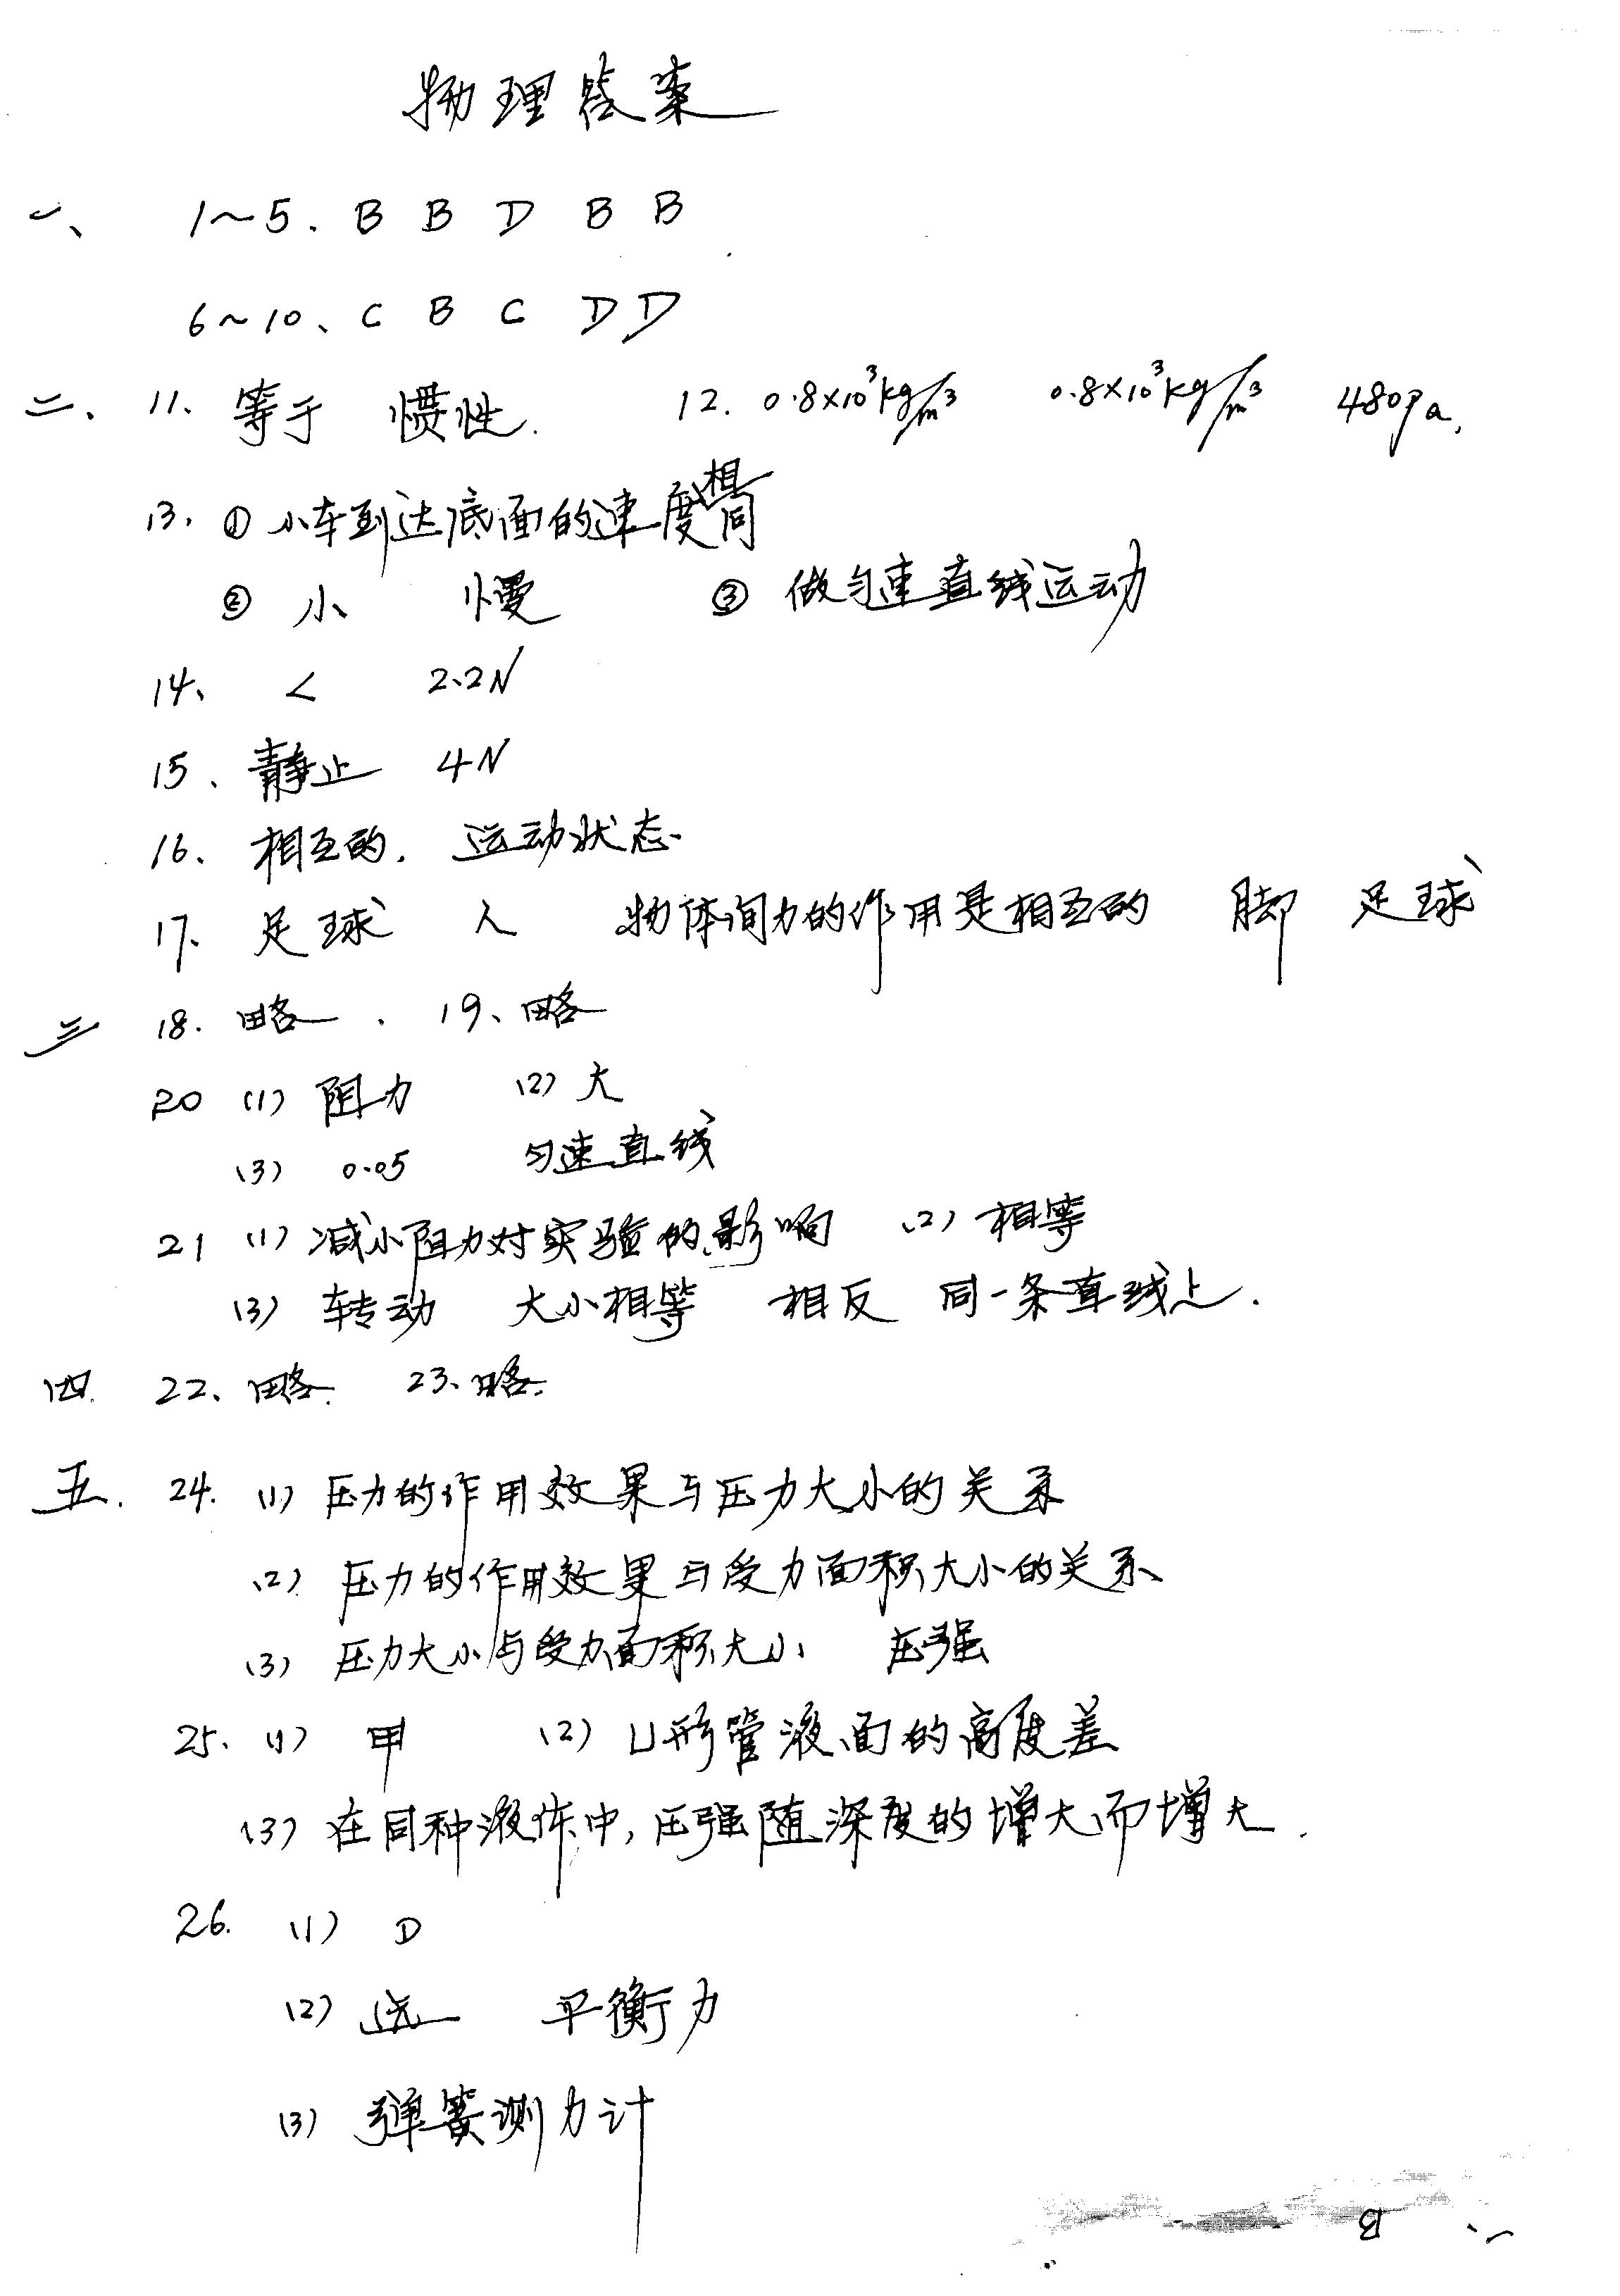 物理答案
一、 1~5. B B D B B
6~10、C B C D D
二、11、等于 惯性. 12. 0.8×10³kg/m³ 0.8×10³kg/m³ 480pa.
13. ① 小车到达底面的速度相同
② 小 慢 ③ 做匀速直线运动
14、 < 2.2N
15、静止 4N
16、相互的. 运动状态.
17、足球 人 物体间力的作用是相互的 脚 足球
三 18. 略. 19、略
20 (1) 阻力 (2) 大
(3) 0.05 匀速直线
21 (1) 减小阻力对实验的影响 (2) 相等
(3) 转动 大小相等 相反 同一条直线上.
四. 22、略. 23、略.
五. 24. (1) 压力的作用效果与压力大小的关系
(2) 压力的作用效果与受力面积大小的关系
(3) 压力大小与受力面积大小 压强
25. (1) 甲 (2) U形管液面的高度差
(3) 在同种液体中,压强随深度的增大而增大.
26. (1) D
(2) 选 平衡力
(3) 弹簧测力计